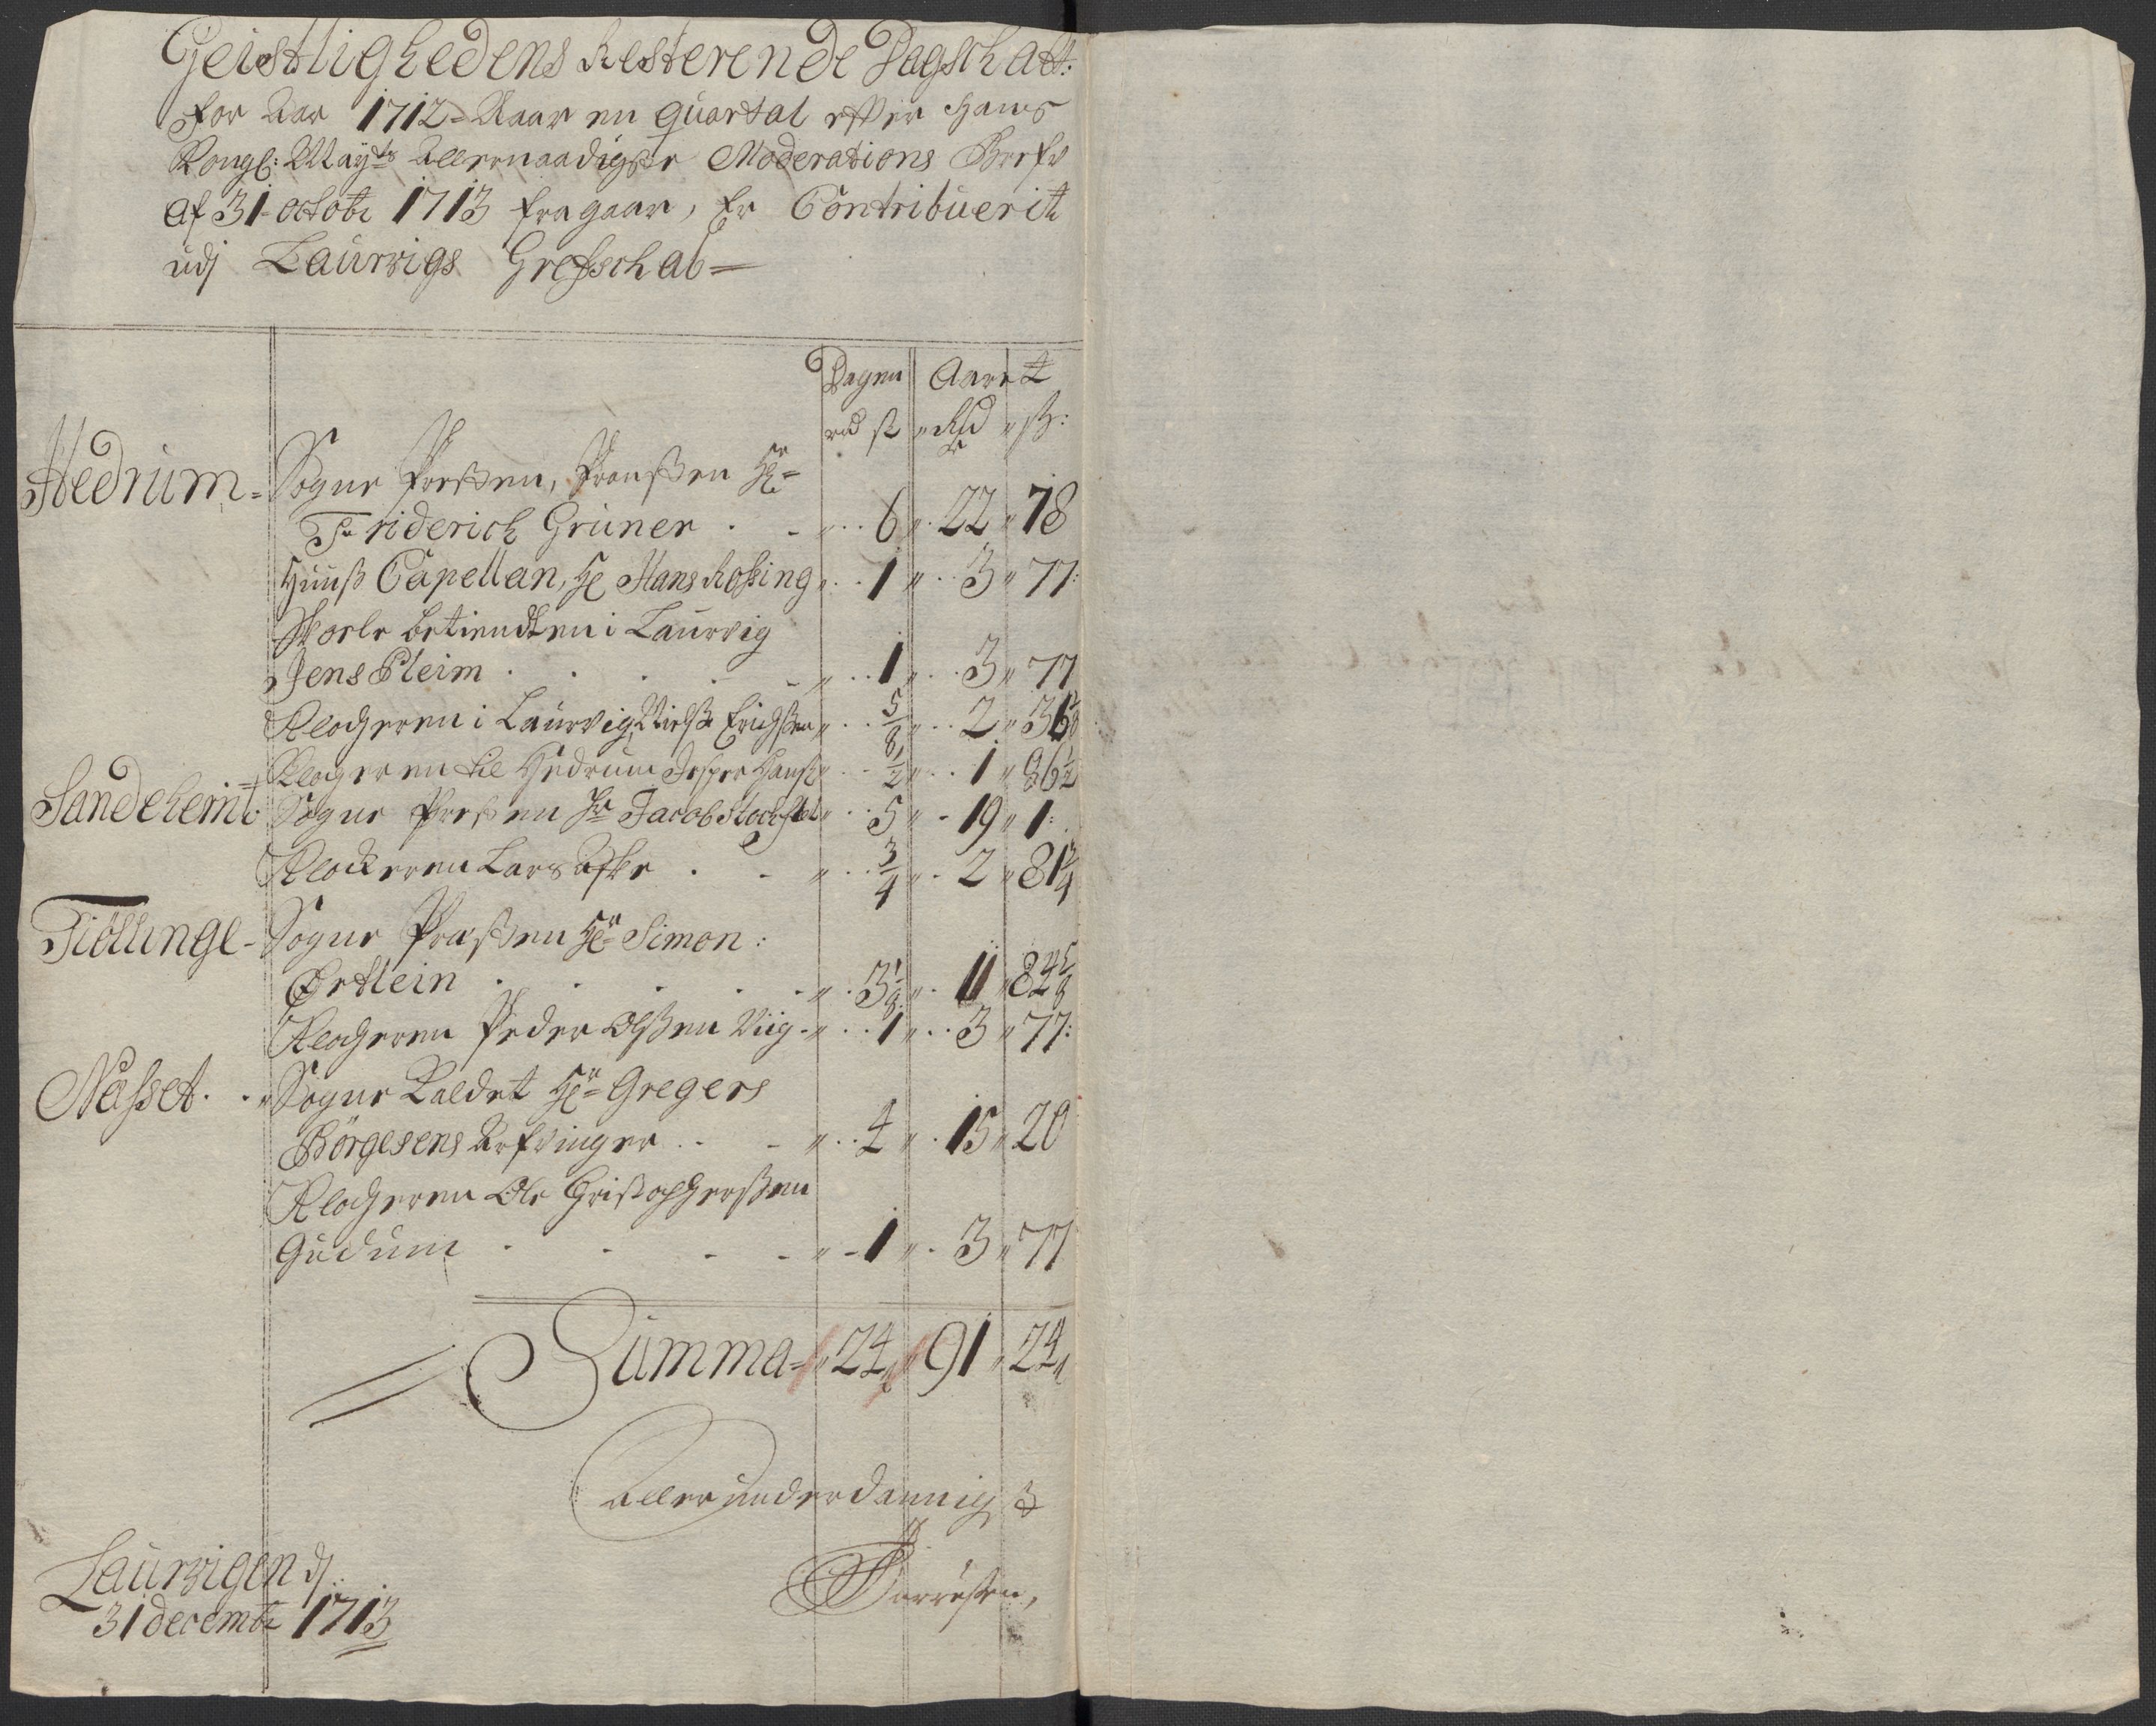 Geistlighedens Resterende Dagschatt:
for Aar 1712 = Naar en quartal efter Hans
Kongl: Mayts Allernaadigste Moderations Bref
af 31 octobr 1713 fragaar, Er Contribuerit
udj Laurvigs Grefschab =
Dagen Aaret
rd ß Rd ß:
Hedrum = Sogne Presten, Prousten Hr
Friderich Grüner 6 22 78
Huuß Capellan, Hr Hans Rossing 1 3 77:
Skole betiendten i Laurvig
Jens Pleim 1 3 77
Klocheren i Laurvig Nielß Erichßen 5/8 2 36 1/8
Klocheren til Hedrum Jesper Hanß 1/2 1 86 1/2
Sandeherrit Sogne Presten Hr Jacob Stochflet 5 19 1:
Klockeren Lars Aske 3/4 2 81 3/4
Tiöllinge - Sogne Præsten Hr Simon:
Ørtlein 3 1/8 11 84 5/8
Klocheren Peder Olßen Viig 1 3 77:
Næsset Sogne Kaldet Hr Gregers
Börgesens Arfvinger 4 15 20
Klocheren Ole Christophersßen
Gudum 1 3 77
Summa = 24 91 24
Allerunderdannigst
Laurvigen dj
31 decembr 1713